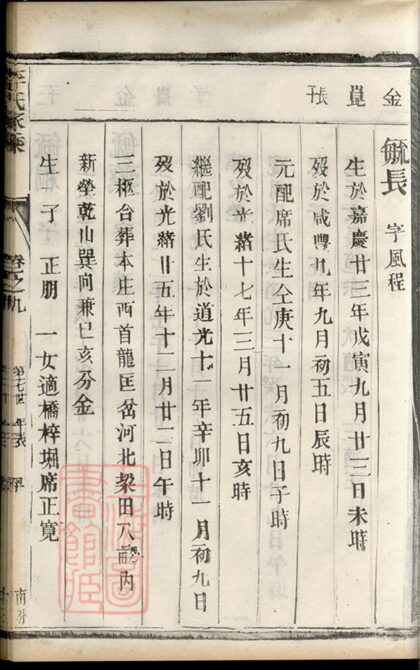 金
崑 張
毓長 字風程
生於嘉慶廿三年戊寅九月廿三日未時
歿於咸豐九年九月初五日辰時
元配席氏生仝庚十一月初九日子時
歿於光緒十七年三月廿五日亥時
繼配劉氏生於道光十一年辛卯十一月初九日
歿於光緒廿五年十二月廿二日午時
三柩合葬本庄西首龍匡岔河北梁田八畝內
新塋乾山巽向兼巳亥分金
生子 正朋 一女適橋梓堀席正寬
李氏家乘
卷之九